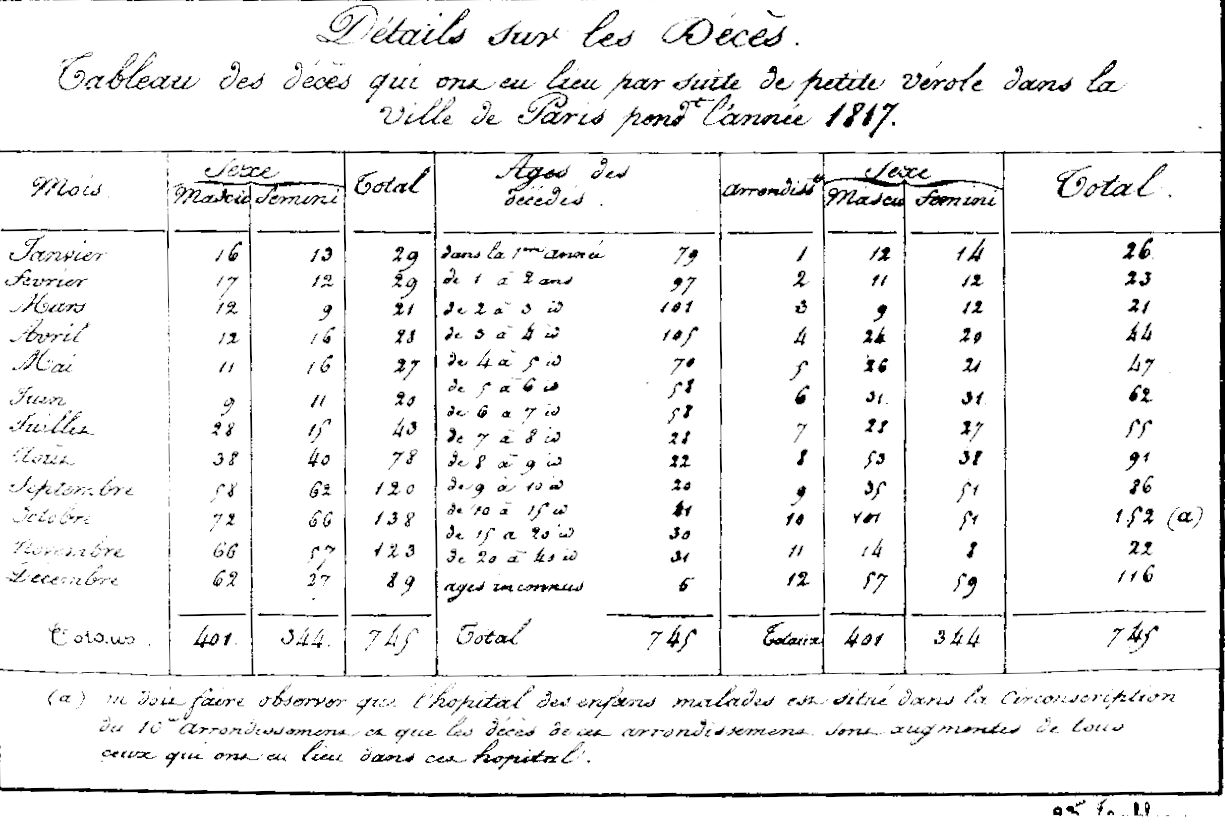 Détails sur les Décès.
Tableau des décès qui ont eu lieu par suite de petite vérole dans la
Ville de Paris pendt l'année 1817.
Mois Sexe Total
Mascu Femini
Janvier 16 13 29
Fevrier 17 12 29
Mars 12 9 21
Avril 12 16 28
Mai 11 16 27
Juin 9 11 20
Juillet 28 15 43
Août 38 40 78
Septembre 58 62 120
Octobre 72 66 138
Novembre 66 57 123
Decembre 62 27 89
Totaux 401 344 745
Ages des
décédés.
dans la 1ere année 79
de 1 à 2 ans 97
de 2 à 3 id 101
de 3 à 4 id 105
de 4 à 5 id 70
de 5 à 6 id 58
de 6 à 7 id 58
de 7 à 8 id 28
de 8 à 9 id 22
de 9 à 10 id 20
de 10 à 15 id 41
de 15 a 20 id 30
de 20 à 40 id 31
ages inconnus 6
Total 745
arrondisst Sexe Total.
Mascu Femini
1 12 14 26
2 11 12 23
3 9 12 21
4 24 20 44
5 26 21 47
6 31 31 62
7 28 27 55
8 53 38 91
9 35 51 86
10 101 51 152 (a)
11 14 8 22
12 57 59 116
Totaux 401 344 745
(a) on doit faire observer que l'hopital des enfans malades est situé dans la Circonscription
du 10me Arrondissement et que les décès de cet arrondissement sont augmentés de tous
ceux qui ont eu lieu dans cet hopital.